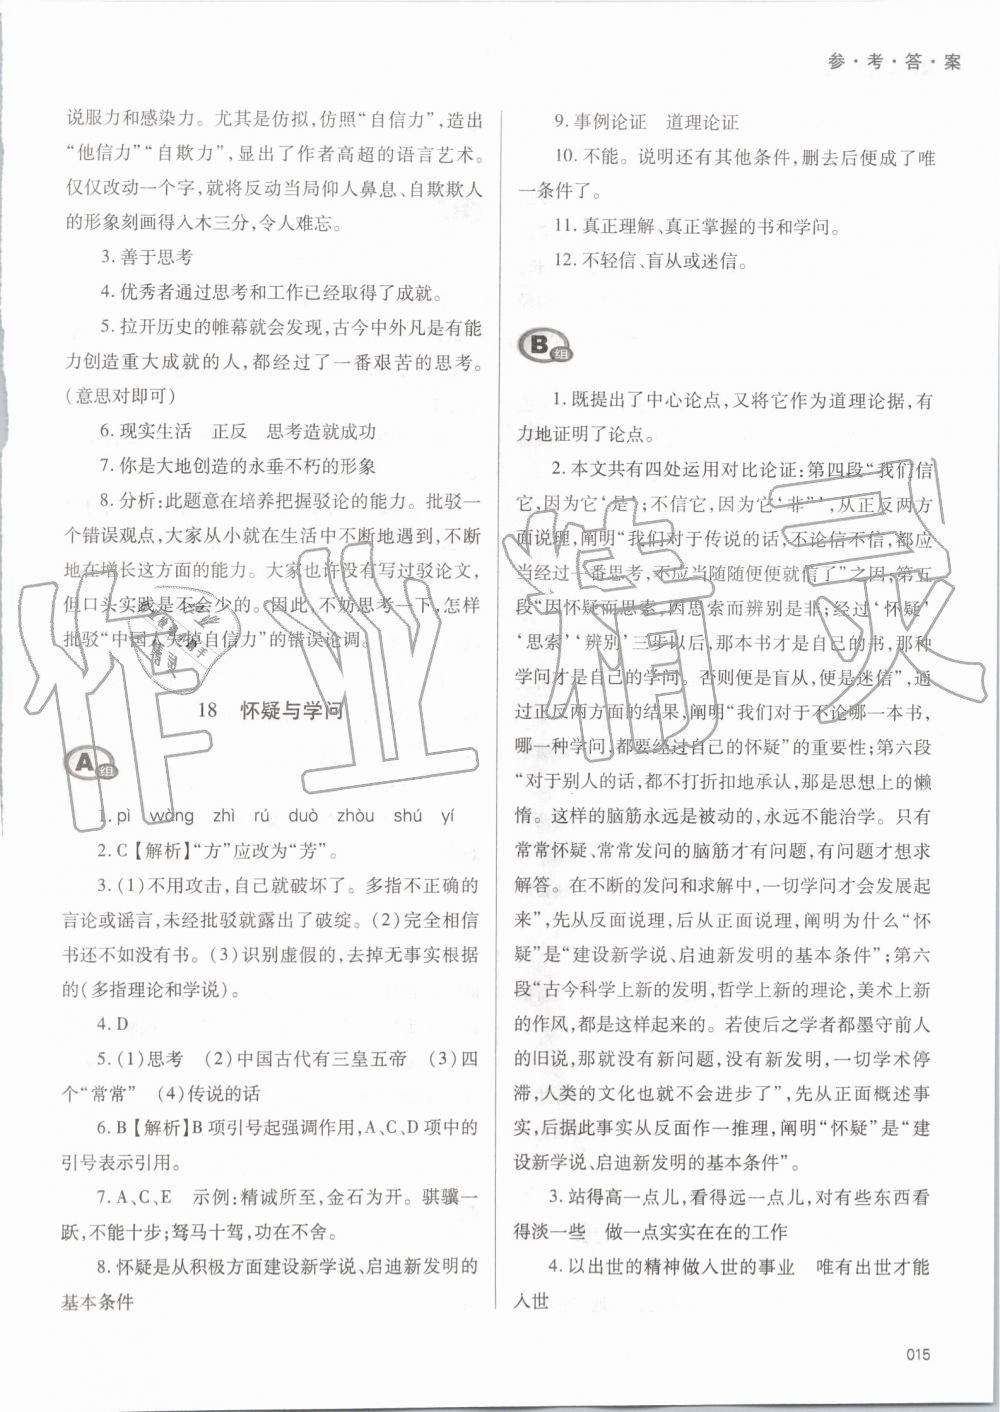 参·考·答·案
说服力和感染力。尤其是仿拟,仿照“自信力”,造出
“他信力”“自欺力”,显出了作者高超的语言艺术。
仅仅改动一个字,就将反动当局仰人鼻息、自欺欺人
的形象刻画得入木三分,令人难忘。
3. 善于思考
4. 优秀者通过思考和工作已经取得了成就。
5. 拉开历史的帷幕就会发现,古今中外凡是有能
力创造重大成就的人,都经过了一番艰苦的思考。
(意思对即可)
6. 现实生活 正反 思考造就成功
7. 你是大地创造的永垂不朽的形象
8. 分析:此题意在培养把握驳论的能力。批驳一
个错误观点,大家从小就在生活中不断地遇到,不断
地在增长这方面的能力。大家也许没有写过驳论文,
但口头实践是不会少的。因此,不妨思考一下,怎样
批驳“中国人失掉自信力”的错误论调。
18 怀疑与学问
A组
1. pì wǎng zhì rú duò zhòu shú yí
2. C【解析】“方”应改为“芳”。
3. (1)不用攻击,自己就破坏了。多指不正确的
言论或谣言,未经批驳就露出了破绽。(2)完全相信
书还不如没有书。(3)识别虚假的,去掉无事实根据
的(多指理论和学说)。
4. D
5. (1)思考 (2)中国古代有三皇五帝 (3)四
个“常常” (4)传说的话
6. B【解析】B项引号起强调作用,A、C、D项中的
引号表示引用。
7. A、C、E 示例:精诚所至,金石为开。骐骥一
跃,不能十步;驽马十驾,功在不舍。
8. 怀疑是从积极方面建设新学说、启迪新发明的
基本条件
9. 事例论证 道理论证
10. 不能。说明还有其他条件,删去后便成了唯
一条件了。
11. 真正理解、真正掌握的书和学问。
12. 不轻信、盲从或迷信。
B组
1. 既提出了中心论点,又将它作为道理论据,有
力地证明了论点。
2. 本文共有四处运用对比论证:第四段“我们信
它,因为它‘是’;不信它,因为它‘非’”,从正反两方
面说理,阐明“我们对于传说的话,不论信不信,都应
当经过一番思考,不应当随随便便就信了”之因;第五
段“因怀疑而思索,因思索而辨别是非;经过‘怀疑’
‘思索’‘辨别’三步以后,那本书才是自己的书,那种
学问才是自己的学问。否则便是盲从,便是迷信”,通
过正反两方面的结果,阐明“我们对于不论哪一本书,
哪一种学问,都要经过自己的怀疑”的重要性;第六段
“对于别人的话,都不打折扣地承认,那是思想上的懒
惰。这样的脑筋永远是被动的,永远不能治学。只有
常常怀疑、常常发问的脑筋才有问题,有问题才想求
解答。在不断的发问和求解中,一切学问才会发展起
来”,先从反面说理,后从正面说理,阐明为什么“怀
疑”是“建设新学说、启迪新发明的基本条件”;第六
段“古今科学上新的发明,哲学上新的理论,美术上新
的作风,都是这样起来的。若使后之学者都墨守前人
的旧说,那就没有新问题,没有新发明,一切学术停
滞,人类的文化也就不会进步了”,先从正面概述事
实,后据此事实从反面作一推理,阐明“怀疑”是“建
设新学说、启迪新发明的基本条件”。
3. 站得高一点儿,看得远一点儿,对有些东西看
得淡一些 做一点实实在在的工作
4. 以出世的精神做入世的事业 唯有出世才能
入世
015
作业精灵